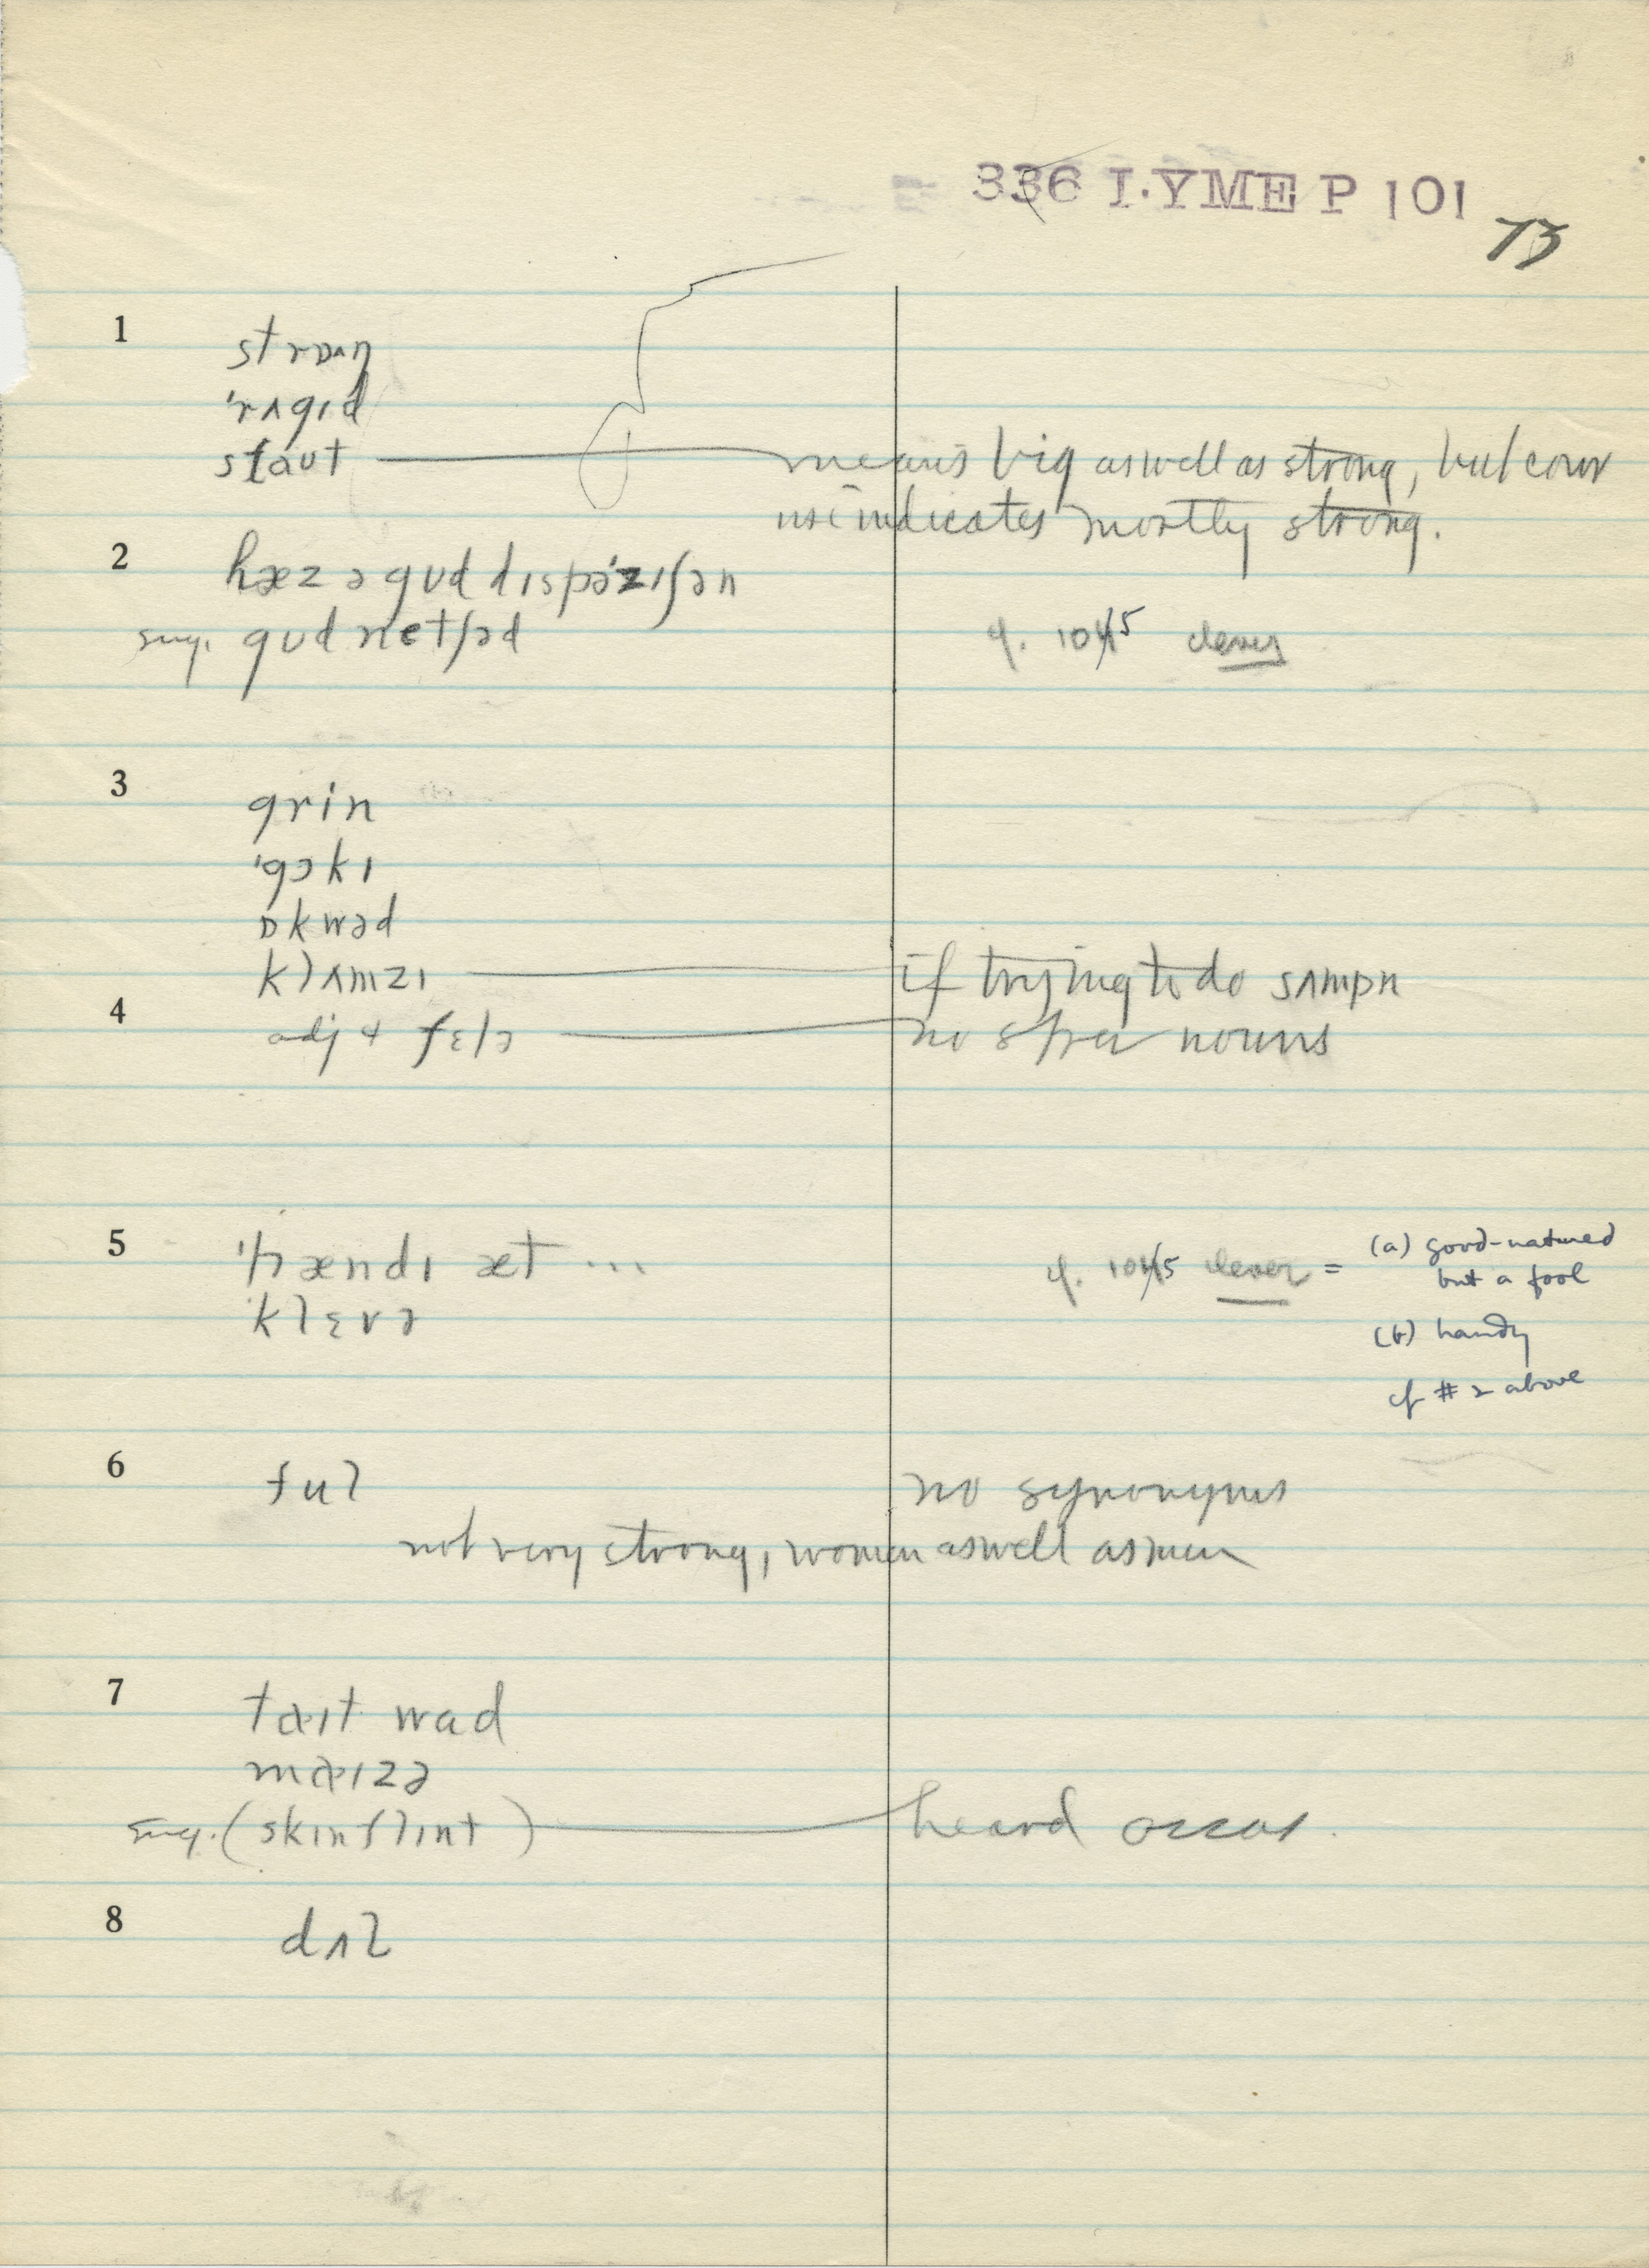 336 LYME P 101
73
1
strɒʌŋ
'rʌgɪd
staʊt — means big as well as strong, but conv
use indicates mostly strong.
2
hæz ə gʊd dɪspə'zɪʃən
sug. gʊd netʃəd cf. 1015 clever
3
grin
'gɔkɪ
ɒkwəd
klʌmzɪ — if trying to do sʌmpn
4
adj + fɛlə — no spec nouns
5
'hændɪ æt ... cf. 1015 clever = (a) good-natured
but a fool
klɛvə
(b) handy
cf # 2 above
6
ful no synonyms
not very strong, women as well as men
7
taɪt wad
maɪzə
sug. (skɪnflɪnt) — heard occas.
8
dʌl